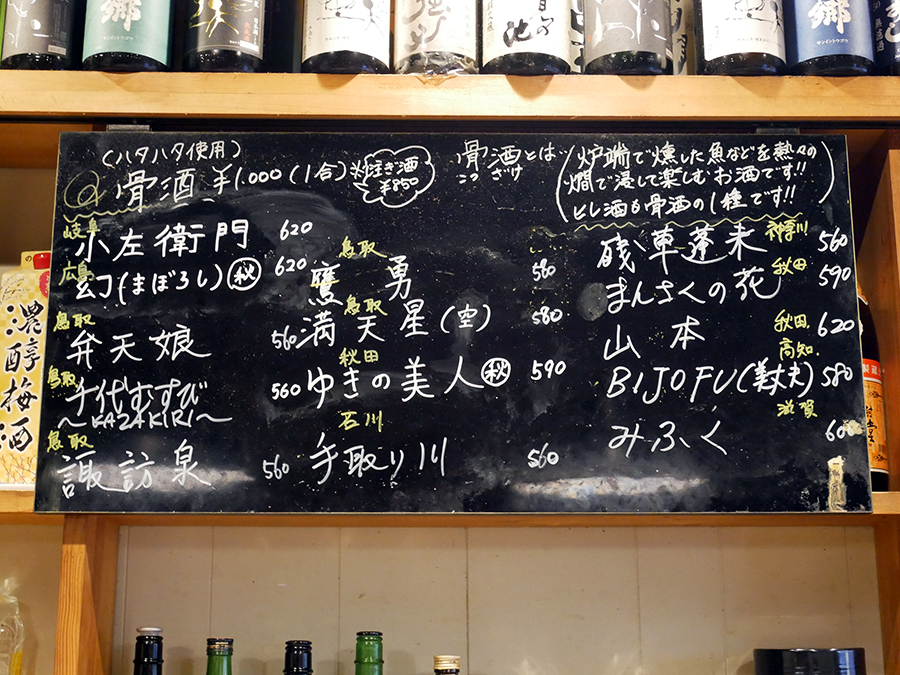 郷
郷
(ハタハタ使用)
骨酒 ¥1.000(1合)
注ぎ酒
¥850
骨酒とは…
こつざけ
炉端で燻した魚などを熱々の
燗で浸して楽しむお酒です!!
ヒレ酒も骨酒の1種です!!
岐阜
小左衛門 620
広島
幻(まぼろし)秋 620
鳥取
弁天娘 560
鳥取
千代むすび 560
〜KAZAKIRI〜
鳥取
諏訪泉 560
鳥取
鷹勇 560
鳥取
満天星(空) 580
秋田
ゆきの美人 秋 590
石川
手取り川 560
神奈川
蓬莱 560
秋田
まんさくの花 590
秋田
山本 620
高知
BIJOFU(美丈夫) 580
滋賀
みふく 600
濃醇梅酒